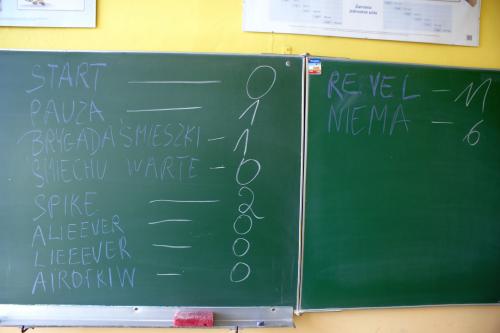 START — 0
PAUZA — 1
BRYGADA ŚMIESZKI - 1
ŚMIECHU WARTE - 0
SPIKE — 2
ALIEEVER — 0
LIEEEVER — 0
AIROFKIW — 0
REVEL - 11
NIEMA - 6